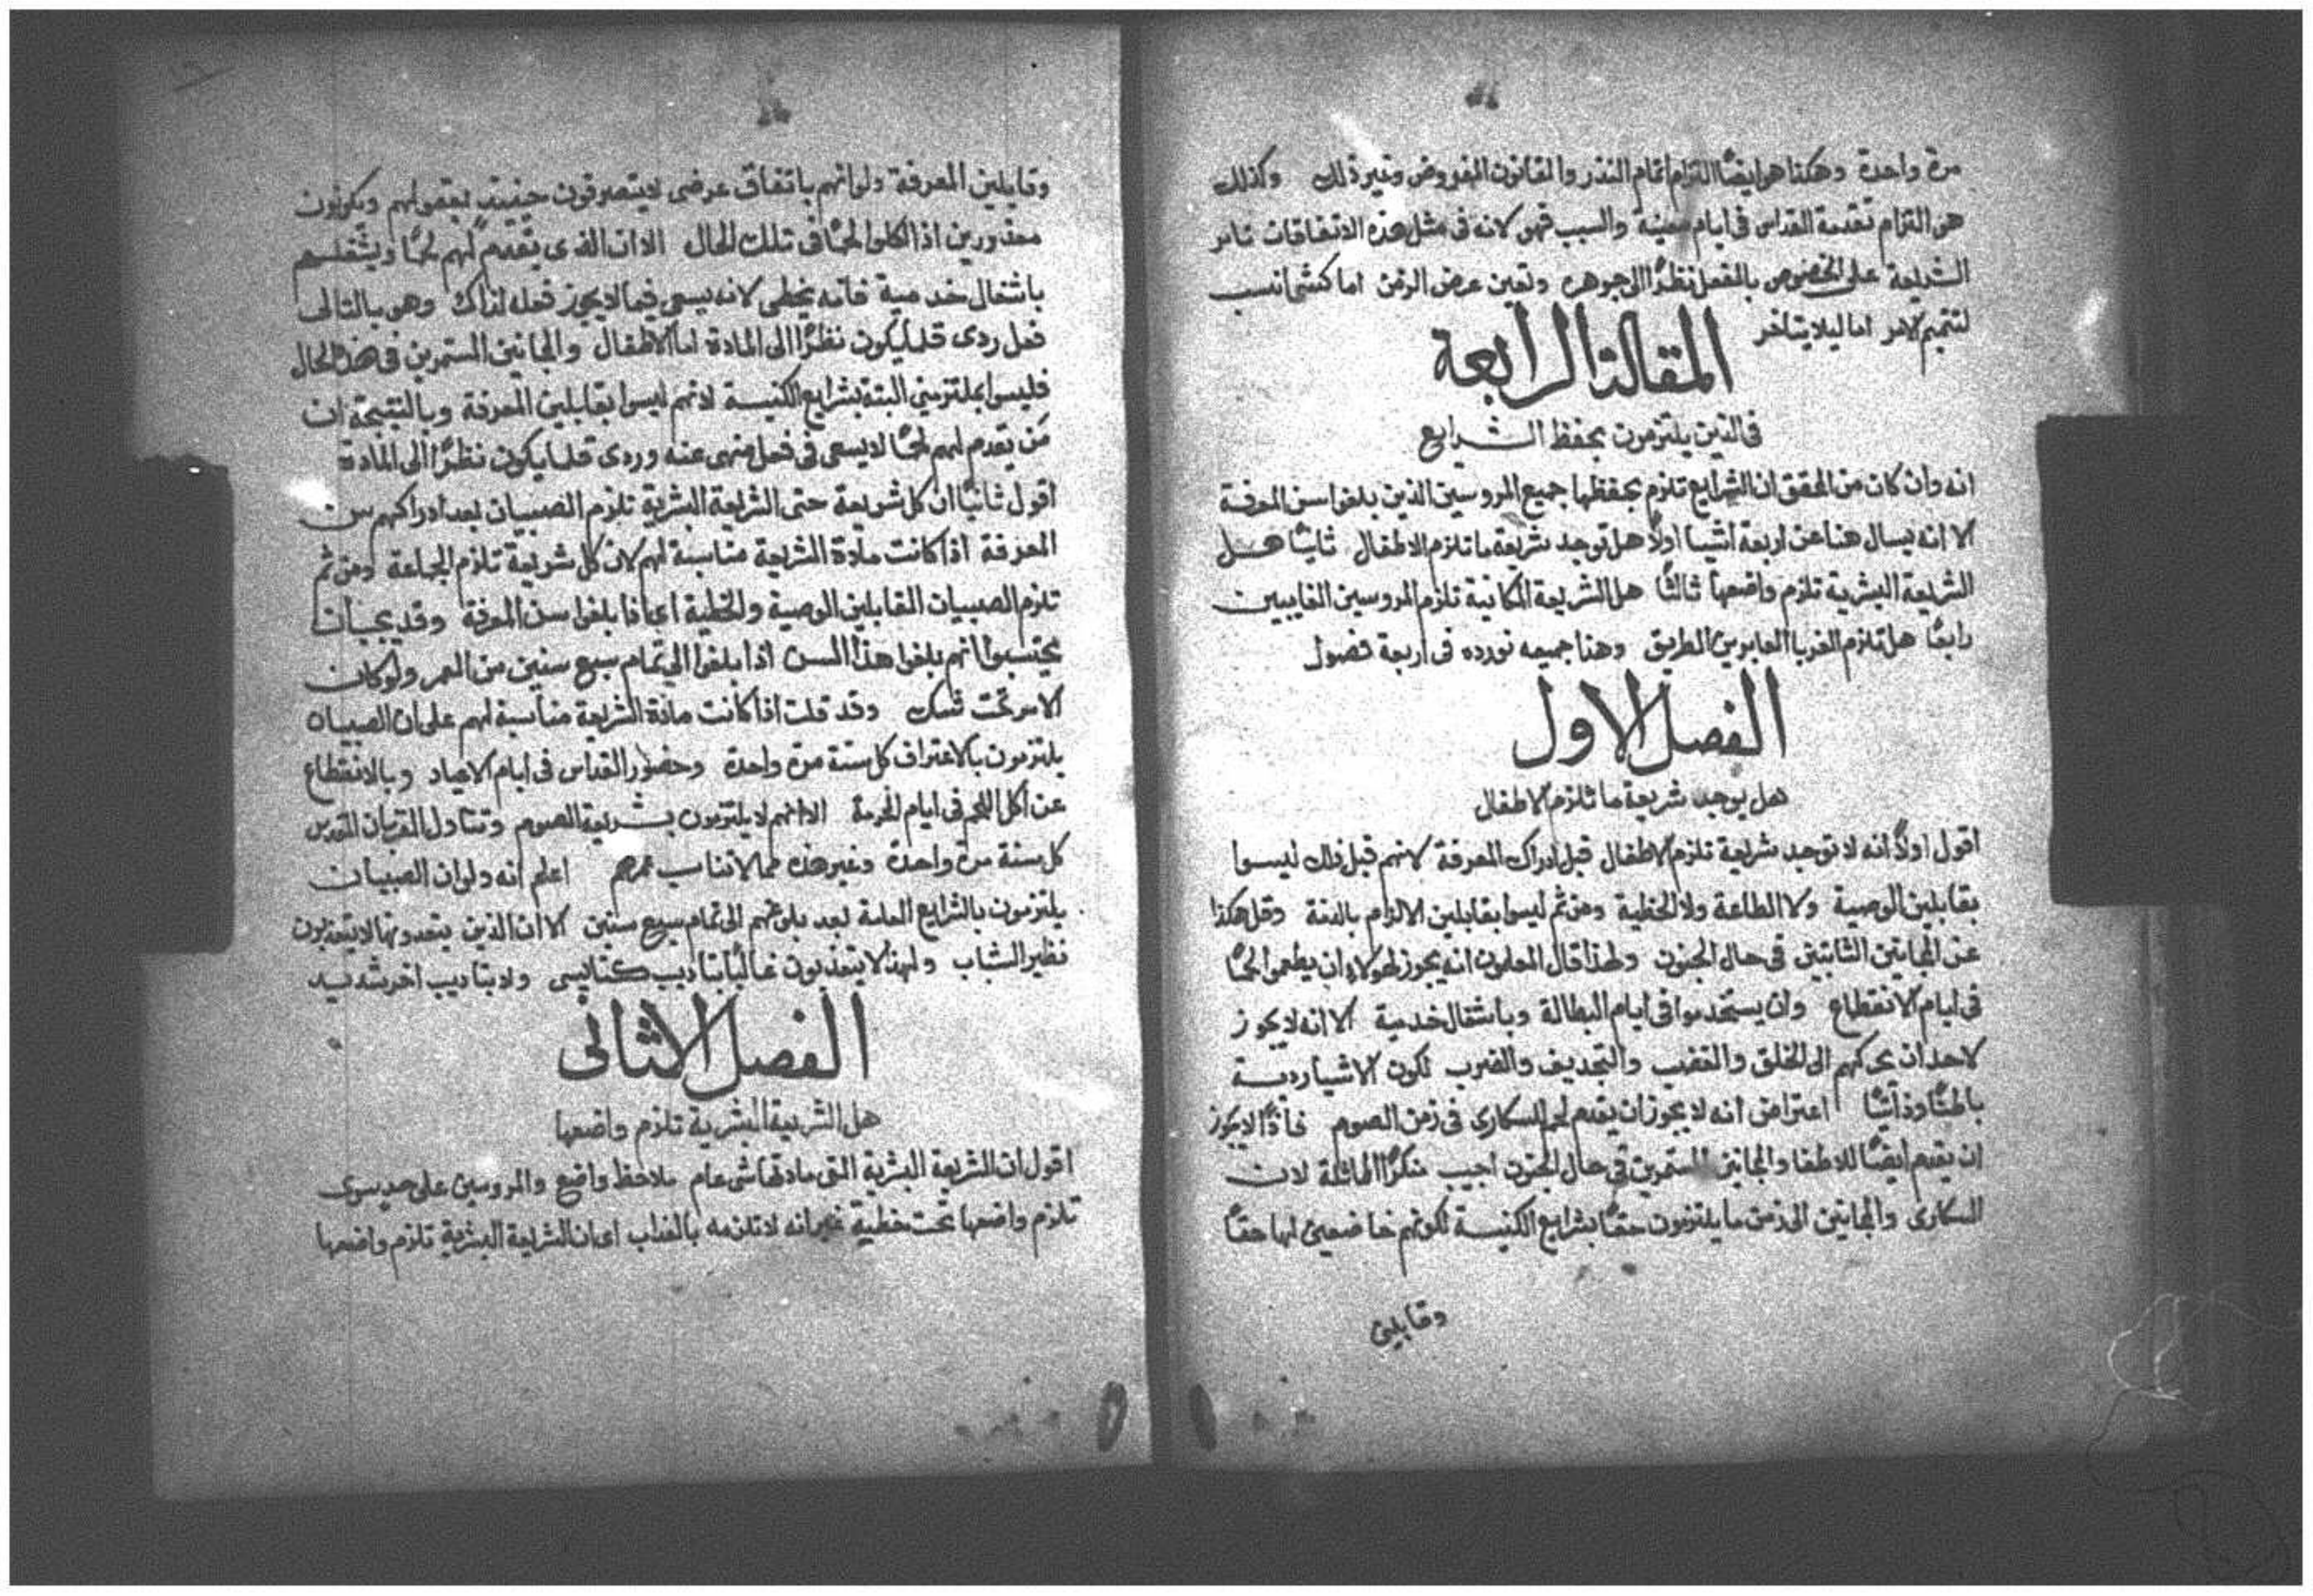 مرة واحدة وهكذا هو ايضًا التزام اتمام النذر والقانون المفروض وغير ذلك وكذلك
هو التزام تقدمة القداس فى ايام معينة والسبب فهو لانه فى مثل هذه الاتفاقات تامر
الشريعة على الخصوص بالفعل نظرًا الى جوهره وتعين عرض الزمن اما كشى انسب
لتتميم الامر اما ليلا يتاخر
المقالة الرابعة
فى الذين يلتزمون بحفظ الشرايع
انه وان كان من المحقق ان الشرايع تلزم بحفظها جميع المروسين الذين بلغوا سن المعرفة
الا انه يسال هنا عن اربعة اشيا اولًا هل توجد شريعة ما تلزم الاطفال ثانيًا هل
الشريعة البشرية تلزم واضعها ثالثًا هل الشريعة المكانية تلزم المروسين الغايبين
رابعًا هل تلزم الغربا العابرين الطريق وهذا جميعه نورده فى اربعة فصول
الفصل الاول
هل يوجد شريعة ما تلزم الاطفال
اقول اولًا انه لا توجد شريعة تلزم الاطفال قبل ادراك المعرفة لانهم قبل ذلك ليسوا
بقابلين الوصية ولا الطاعة ولا الخطية ومن ثم ليسوا بقابلين الالزام بالذمة وقل هكذا
عن المجانين الثابتين فى حال الجنون ولهذا قال المعلمون انه يجوز لهولاء ان يطعموا لحمًا
فى ايام الانقطاع وان يستخدموا فى ايام البطالة وباشغال خدمية الا انه لا يجوز
لاحد ان يحركهم الى الخلق والغضب والتجديف والضرب لكون الاشيا ردية
باطنًا وذاتيًا اعتراض انه لا يجوز ان يقدم لحم للسكارى فى زمن الصوم فاذًا لا يجوز
ان يقدم ايضًا للاطفا والمجانين المستمرين فى حال الجنون اجيب منكرًا المماثلة لان
السكارى والمجانين الى زمن ما يلتزمون حقًا بشرايع الكنيسة لكونهم خاضعين لها حقًا
وقابلين
وقابلين المعرفة ولو انهم باتفاق عرضى لا يتصرفون حينيذٍ بعقولهم ويكونون
معذورين اذا اكلوا لحمًا فى تلك الحال الا ان الذى يقدم لهم لحمًا ويشغلهم
باشغال خدمية فانه يخطى لانه يسعى فيما لا يجوز فعله لذاك وهو بالتالى
فعل ردى قلما يكون نظرًا الى المادة اما الاطفال والمجانين المستمرين فى هذا الحال
فليسوا بملتزمين البتة بشرايع الكنيسة لانهم ليسوا بقابلين المعرفة وبالنتيجة ان
من يقدم لهم لحمًا لا يسعى فى فعل منهى عنه وردى قلما يكون نظرًا الى المادة
اقول ثانيًا ان كل شريعة حتى الشريعة البشرية تلزم الصبيان بعد ادراكهم سن
المعرفة اذا كانت مادة الشريعة مناسبة لهم لان كل شريعة تلزم الجماعة ومن ثم
تلزم الصبيان القابلين الوصية والخطية اى اذا بلغوا سن المعرفة وقد يجب ان
يحتسبوا انهم بلغوا هذا السن اذا بلغوا الى تمام سبع سنين من العمر ولو كان
الامر تحت شك وقد قلت اذا كانت مادة الشريعة مناسبة لهم على ان الصبيان
يلتزمون بالاعتراف كل سنة مرة واحدة وحضور القداس فى ايام الاعياد وبالانقطاع
عن اكل اللحم فى ايام الحرمة الا انهم لا يلتزمون بشريعة الصوم وتناول القربان المقدس
كل سنة مرة واحدة وغير هذه مما لا تناسب عمرهم اعلم انه ولو ان الصبيان
يلتزمون بالشرايع العامة بعد بلوغهم الى تمام سبع سنين الا ان الذين يتعدونها لا يتعذبون
نظير الشاب ولهذا لا يتعذبون غالبًا بتاديب كنايسى ولا بتاديب اخر شديد
الفصل الاثانى
هل الشريعة البشرية تلزم واضعها
اقول ان الشريعة البشرية التى مادتها شى عام ملاحظ واضع والمروسين على حد سوى
تلزم واضعها تحت خطية غير انه لا تلزمه بالعذاب اى ان الشريعة البشرية تلزم واضعها